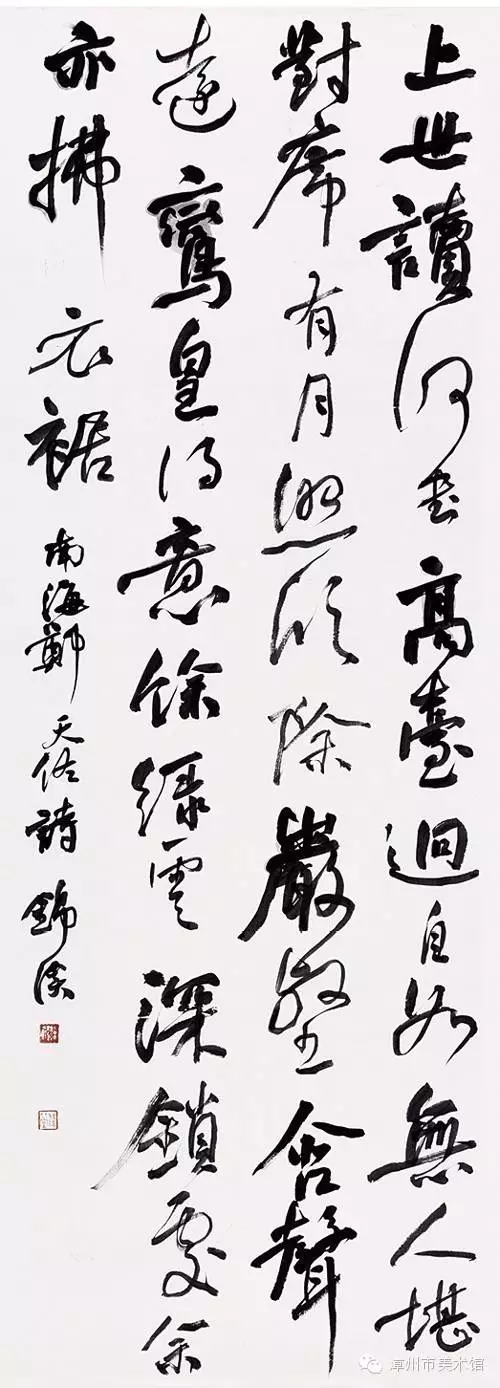 上世讀何書高臺迥自如無人堪
對席有月照除嚴壑含聲
遠鸞皇得意餘綠雲深鎖處余
亦拂衣裾
南海鄭天佐詩 錦
漳州市美术馆